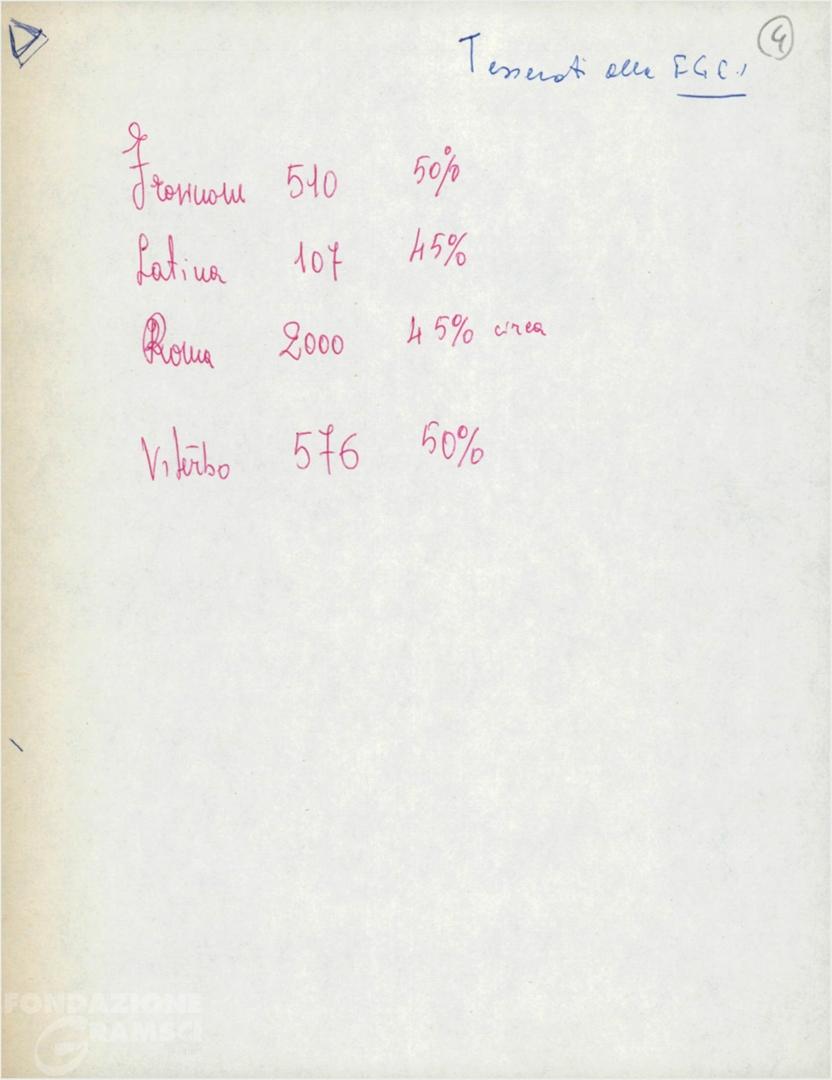 4
Tesserati alla FGCI
Frosinone 510 50%
Latina 107 45%
Roma 2000 45% circa
Viterbo 576 50%
FONDAZIONE
GRAMSCI